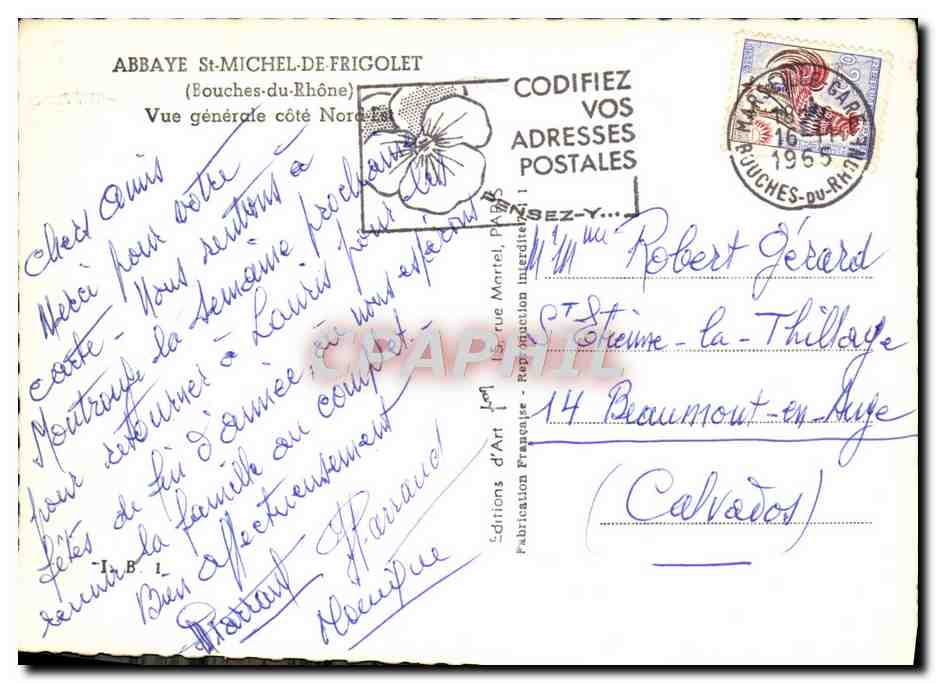 ABBAYE St-MICHEL-DE-FRIGOLET
(Bouches-du-Rhône)
Vue générale côté Nord-Est
Chers amis
Merci pour votre
carte - Nous rentrons à
Montrouge la semaine prochaine
pour retourner à Lauris pour les
fêtes de fin d'année, où nous espérons
réunir la famille au complet -
Bien affectueusement
Monique
- I. B. 1.
CODIFIEZ
VOS
ADRESSES
POSTALES
PENSEZ-Y...
MARSEILLE-GARE
16-11
1965
BOUCHES-DU-RHONE
0,30
Editions d'Art
15, rue Martel, PARIS
Fabrication Française - Reproduction Interdite
Mr Mme Robert Gérard
St Etienne-la-Thillaye
14 Beaumont-en-Auge
(Calvados)
CPAPHIL